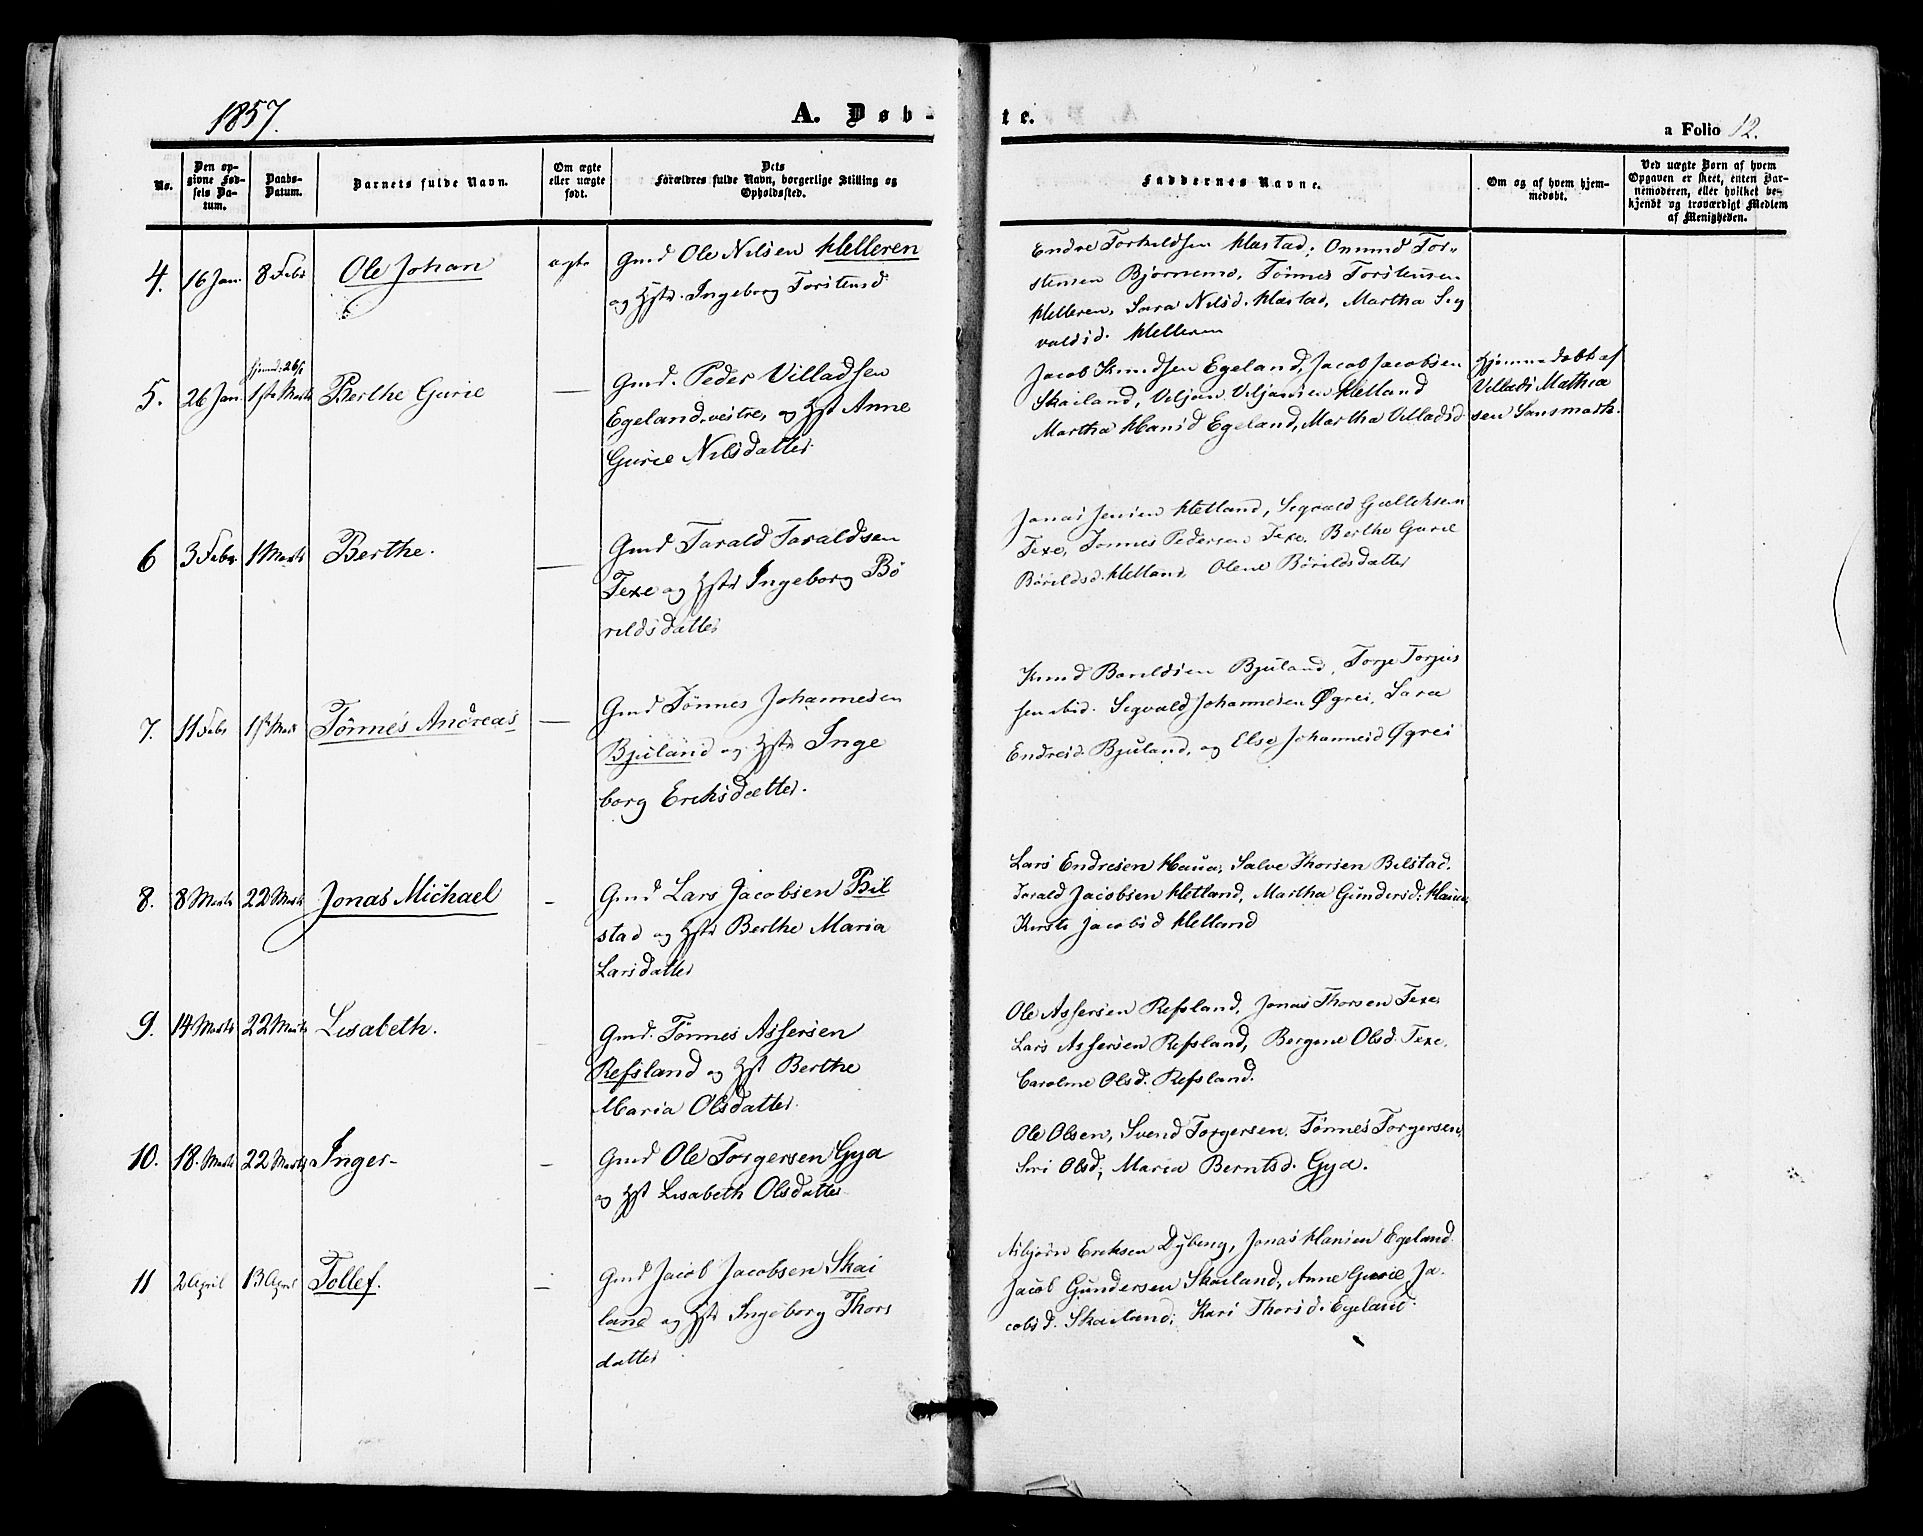 1857.
A. Døb-
te.
a Folio 12.
No.
Den op-
givne Fød-
sels Da-
tum.
Daabs-
Datum.
Barnets fulde Navn.
Om ægte
eller uægte
født.
Dets
Forældres fulde Navn, borgerlige Stilling og
Opholdssted.
Faddernes Navne.
Om og af hvem hjem-
medøbt.
Ved uægte Børn af hvem
Opgaven er skeet, enten Bar-
nemoderen, eller hvilket be-
kjendt og troværdigt Medlem
af Menigheden.
4. 16 Jan 8 Febr Ole Johan ægte
Gmd Ole Nilsen Helleren
og Hstr. Ingeborg Torstensd
Endre Torkildsen Hastad; Onund Tor-
stensen Bjørnemo, Tønnes Torstensen
Helleren, Sara Nilsd. Hastad, Martha Sig
valdsd. Helleren
5. 26 Jan 1ste Marts Berthe Gurie —
Gmd. Peder Villadsen
Egeland, vestre, og Hst Anne
Gurie Nilsdatter
Jacob Knudsen Egeland, Jacob Jacobsen
Skailand, Viljam Viljamsen Hetland
Martha Hansd Egeland, Martha Villadsd
Hjemmedøbt af
Villads Mathia
sen Sansmark.
6 3 Febr. 1 Marts Berthe. —
Gmd Tarald Taraldsen
Texe og Hstr Ingeborg Bø
rildsdatter
Jonas Jensen Hetland, Sigvald Gulleksen
Texe, Tønnes Pedersen Texe, Berthe Gurie
Børildsd. Hetland, Olene Børildsdatter
7. 11 Febr 1st Mart Tønnes Andreas —
Gmd Tønnes Johannesen
Bjuland og Hstr Inge
borg Eriksdatter.
Knud Baroldsen Bjuland, Torje Torjus
sen ibid. Sigvald Johannesen Øgrei, Sara
Endresd Bjuland, og Else Johannesd Øgrei
8. 8 Marts 22 Marts Jonas Michael —
Gmd Lars Jacobsen Bil
stad og Hstr Berthe Maria
Larsdatter
Lars Endresen Haua, Salve Thorsen Bilstad.
Tarald Jacobsen Hetland, Martha Gundersd: Haua,
Kirsti Jacobsd Hetland
9. 14 Marts 22 Marts Lisabeth.
Gmd. Tønnes Assersen
Refsland og Hst Berthe
Maria Olsdatter.
Ole Assersen Refsland, Jonas Thorsen Texe
Lars Assersen Refsland, Bergene Olsd. Texe.
Caroline Olsd. Refsland.
10. 18. Marts 22 Marts Inger- —
Gmd Ole Torgersen Gya
og Hst Lisabeth Olsdatter
Ole Olsen, Svend Torgersen, Tønnes Torgersen,
Siri Olsd; Maria Berntsd. Gya.
11 2 April 13 April Tollef. —
Gmd Jacob Jacobsen Skai
land og Hstr Ingeborg Thors
datter
Asbjørn Eriksen Dybeng, Jonas Hansen Egeland
Jacob Gundersen Skailand, Anne Gurie Ja-
cobsd. Skailand; Kari Thorsd. Egeland.